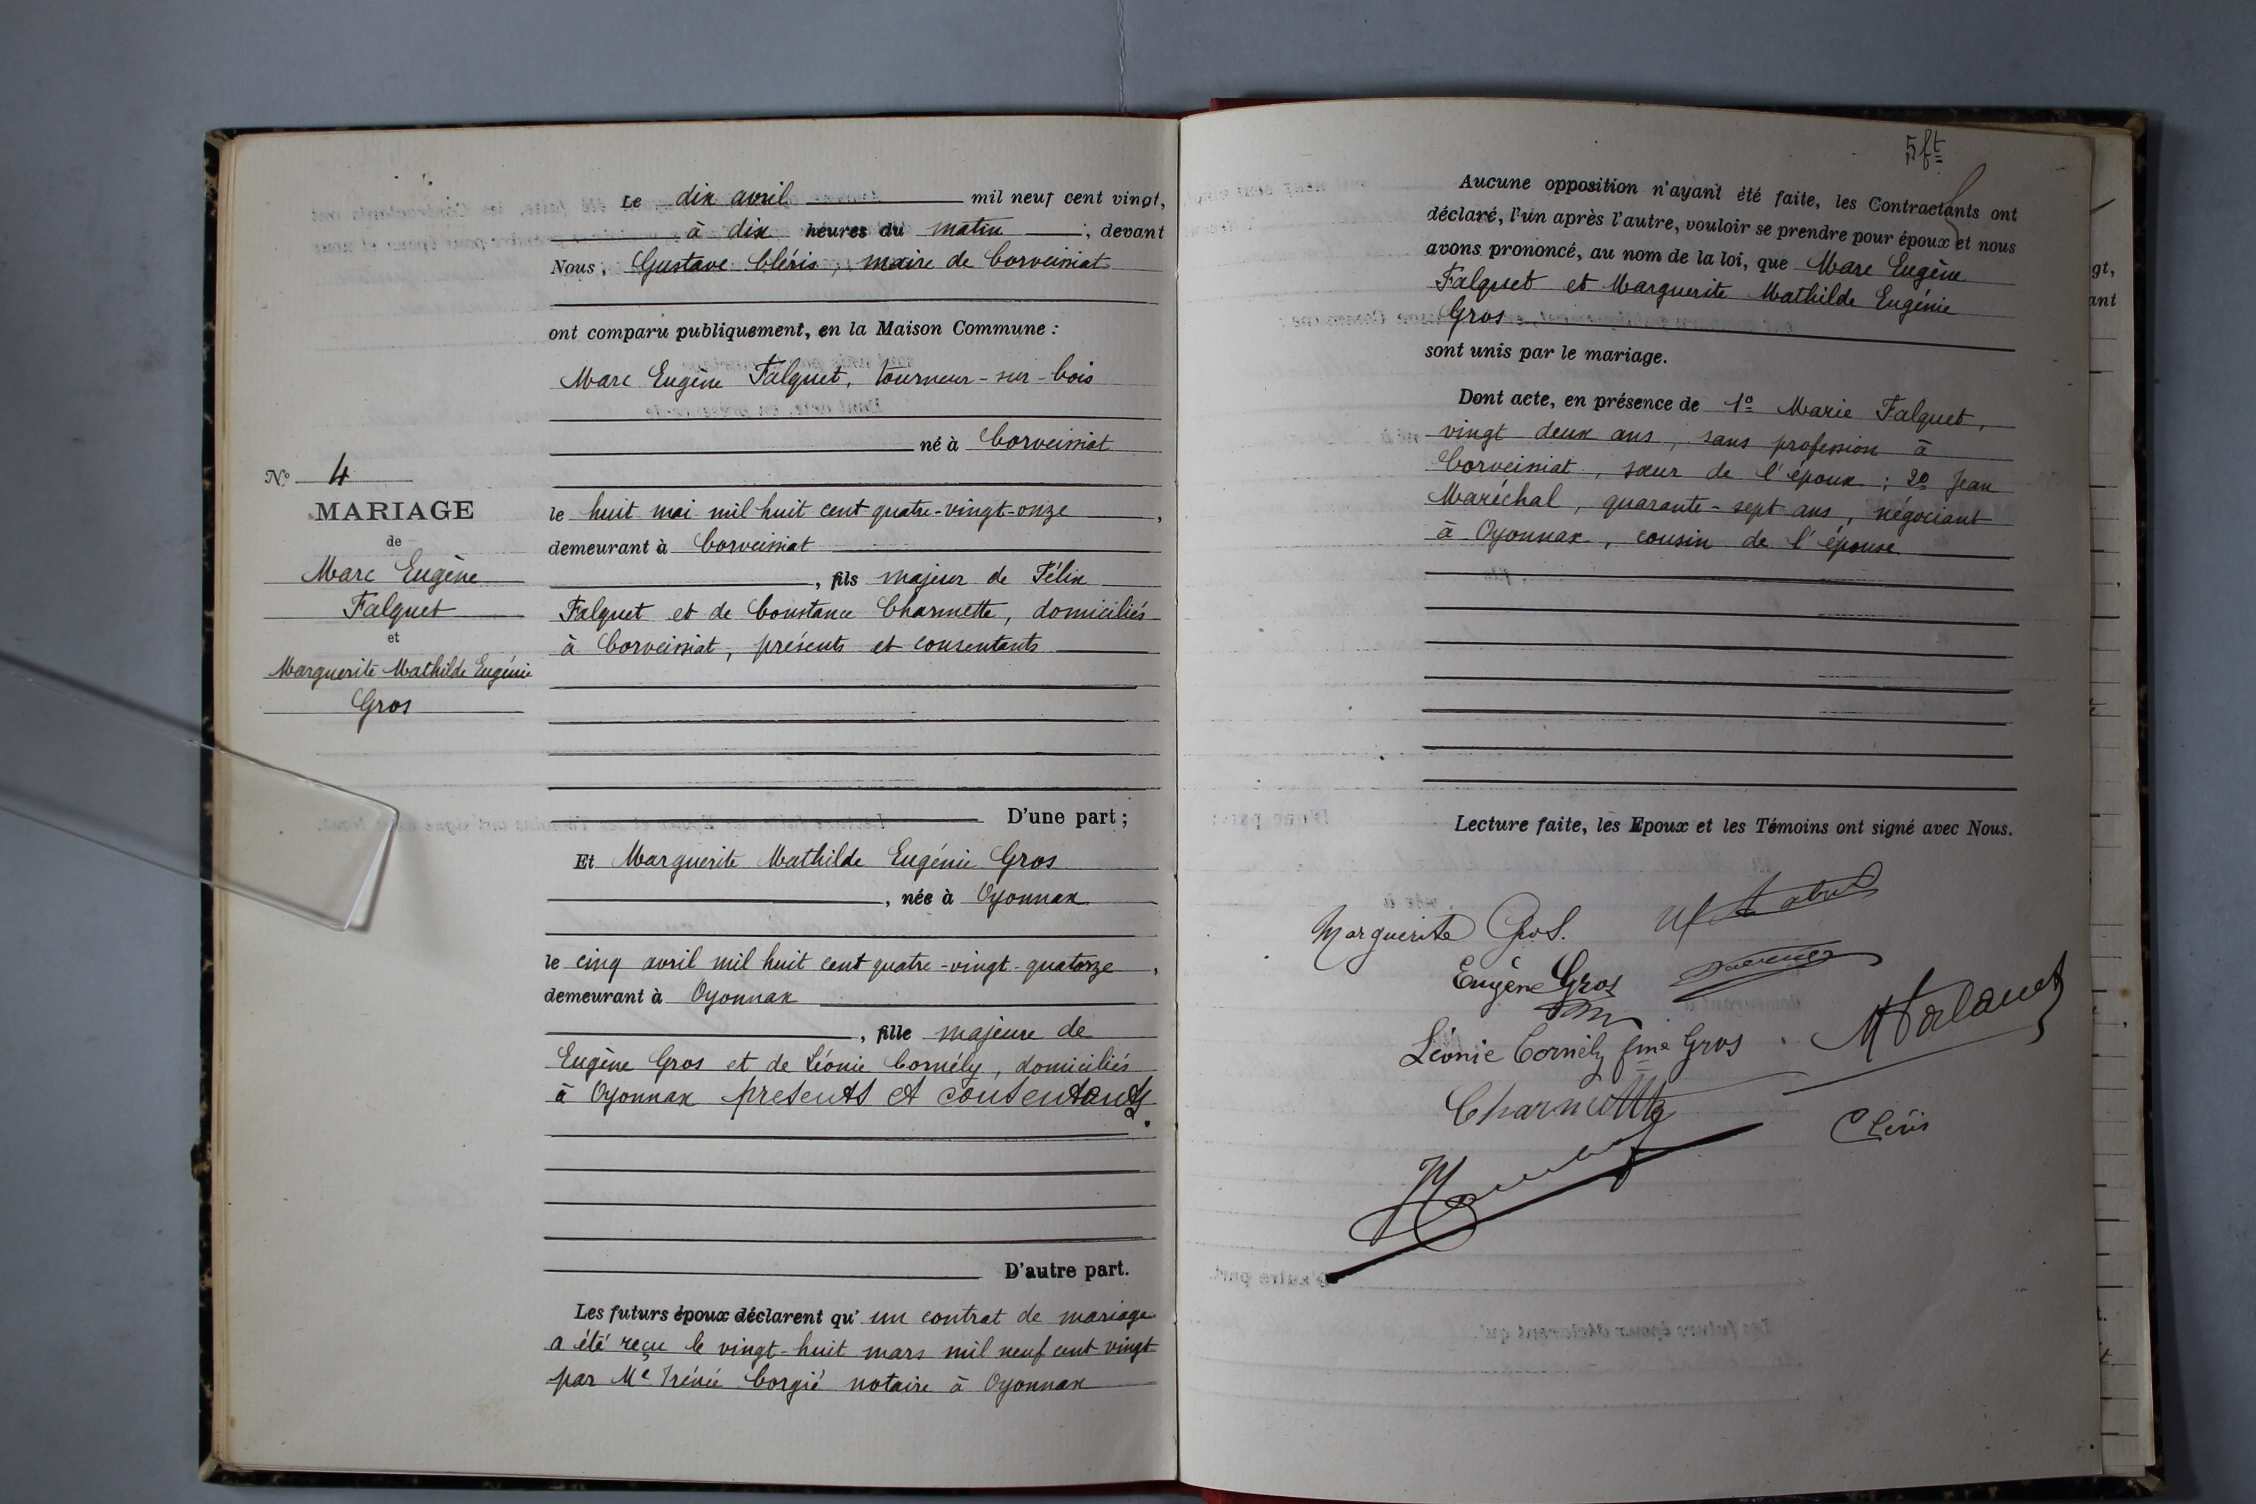 Le dix avril mil neuf cent vingt,
à dix heures du matin, devant
Nous, Gustave Cléris, maire de Corveissiat
ont comparu publiquement, en la Maison Commune :
Marc Eugène Falquet, tourneur-sur-bois
né à Corveissiat
le huit mai mil huit cent quatre-vingt-onze,
demeurant à Corveissiat
, fils majeur de Félix
Falquet et de Constance Charmette, domiciliés
à Corveissiat, présents et consentants
D'une part ;
Et Marguerite Mathilde Eugénie Gros
, née à Oyonnax
le cinq avril mil huit cent quatre-vingt-quatorze,
demeurant à Oyonnax
, fille majeure de
Eugène Gros et de Léonie Cornély, domiciliés
à Oyonnax présents et consentants.
D'autre part.
Les futurs époux déclarent qu'un contrat de mariage
a été reçu le vingt-huit mars mil neuf cent vingt
par Me Irénée Corgié notaire à Oyonnax
No 4
MARIAGE
de
Marc Eugène
Falquet
et
Marguerite Mathilde Eugénie
Gros
5 ft
Aucune opposition n'ayant été faite, les Contractants ont
déclaré, l'un après l'autre, vouloir se prendre pour époux et nous
avons prononcé, au nom de la loi, que Marc Eugène
Falquet et Marguerite Mathilde Eugénie
Gros
sont unis par le mariage.
Dont acte, en présence de 1o Marie Falquet,
vingt deux ans, sans profession à
Corveissiat, sœur de l'époux ; 2o Jean
Maréchal, quarante-sept ans, négociant
à Oyonnax, cousin de l'épouse
Lecture faite, les Epoux et les Témoins ont signé avec Nous.
Marguerite Gros.
Eugène Gros
Léonie Cornély fme Gros
M Falquet
Charmette
Cléris
gt,
ant